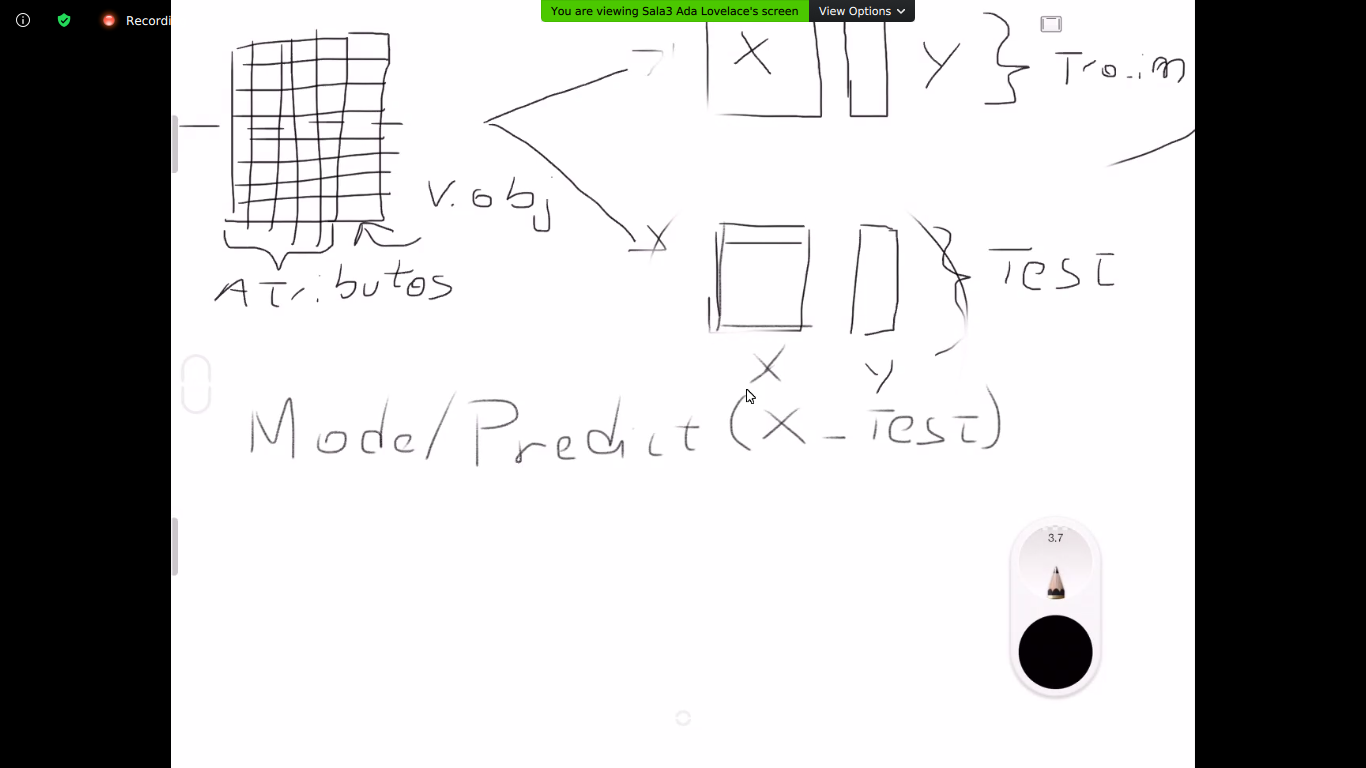 Recordi
You are viewing Sala3 Ada Lovelace's screen
View Options
X
Y
Train
V.obj
Atributos
X
Test
X
Y
Model Predict (X_Test)
3.7